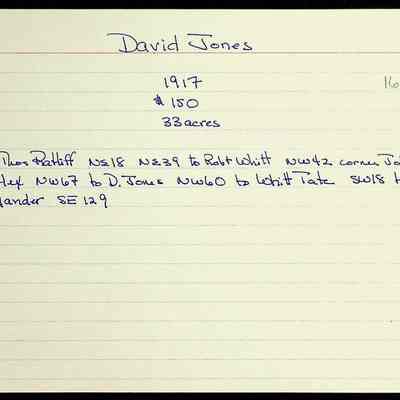 David Jones
1917
16
$150
33 acres
Thos Ratliff NE18 NE39 to Robt Whitt NW42 corner Jo
Alex NW67 to D. Jones NW60 to Whitt Tate SW18 t
xander SE 129